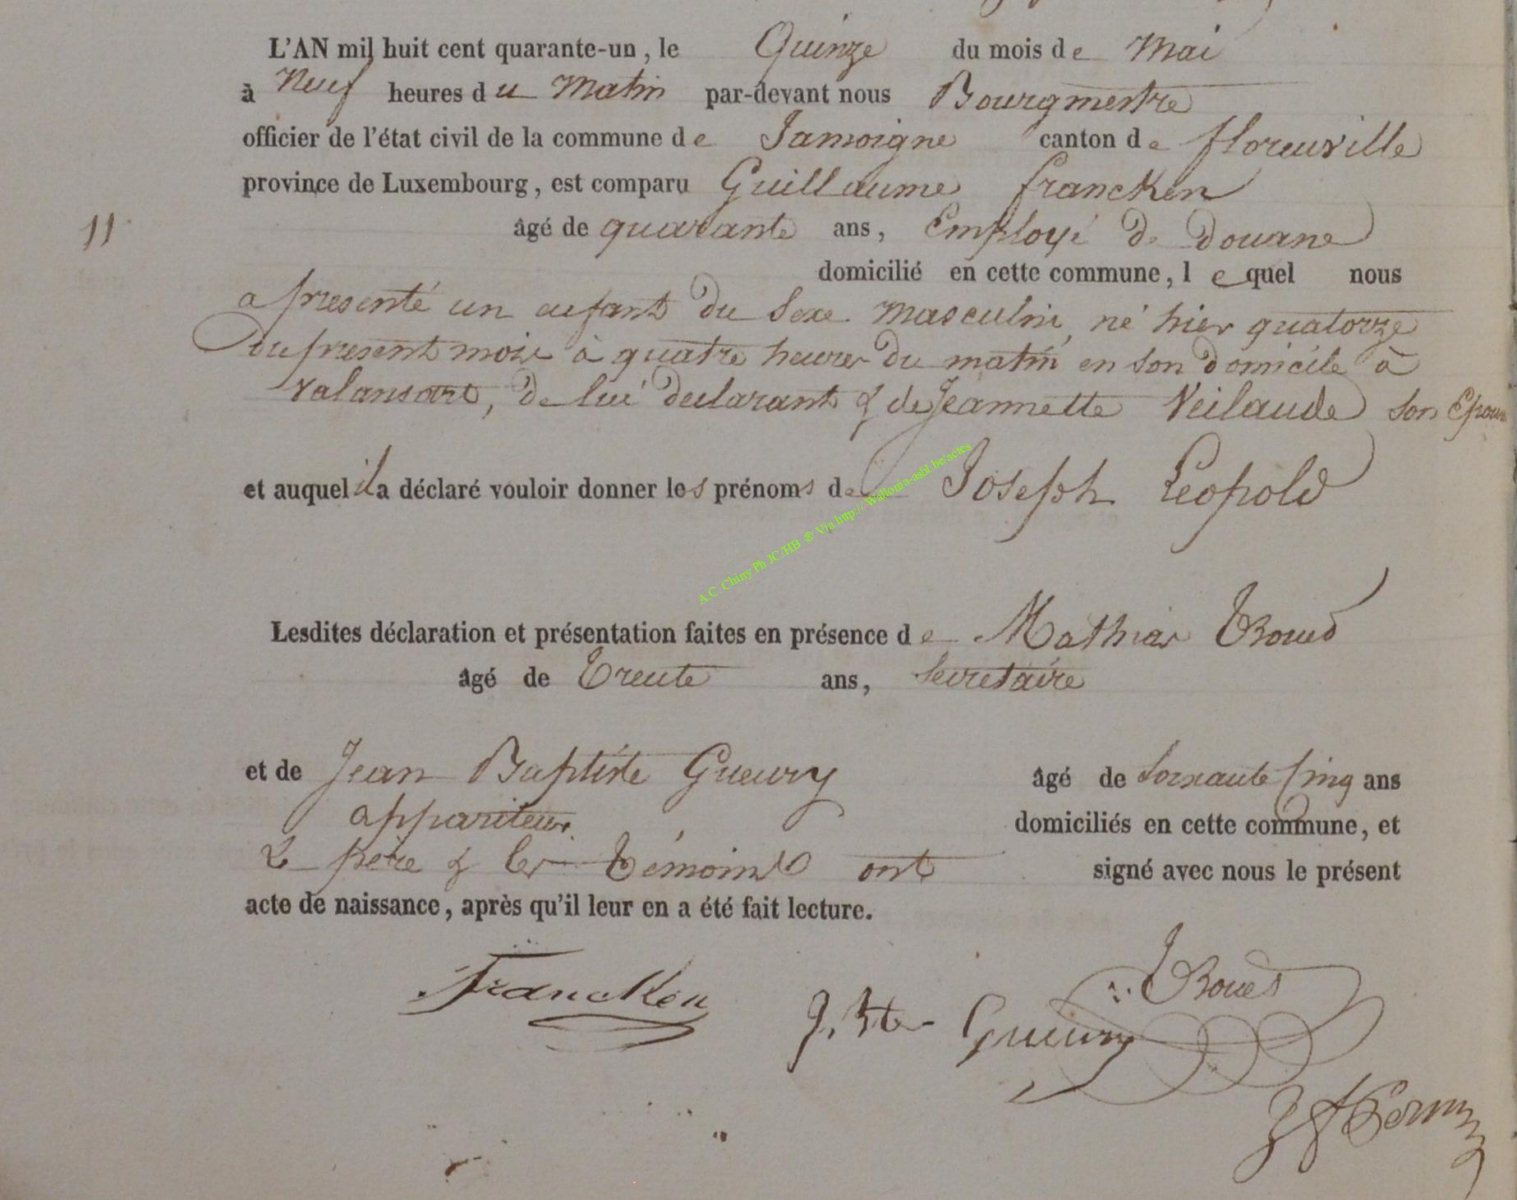 L'AN mil huit cent quarante-un, le Quinze du mois de Mai
à Neuf heures du Matin par-devant nous Bourgmestre
officier de l'état civil de la commune de Jamoigne canton de florenville
province de Luxembourg, est comparu Guillaume francken
11 âgé de quarante ans, Employé de douane
domicilié en cette commune, lequel nous
a présenté un enfant du sexe masculin, né hier quatorze
du present mois à quatre heures du matin en son domicile à
Valansart, de lui déclarant & de Jeannette Veilande son Epouse
et auquel il a déclaré vouloir donner les prénoms de Joseph Léopold
A.C. Chiny Ph JC/HB ® Via http://Wallonia-asbl.be/actes
Lesdites déclaration et présentation faites en présence de Mathias
âgé de trente ans, secretaire
et de Jean Baptiste Gueury âgé de soixante cinq ans
appariteur domiciliés en cette commune, et
Le père & les témoins ont signé avec nous le présent
acte de naissance, après qu'il leur en a été fait lecture.
Francken
J. Bte Gueury